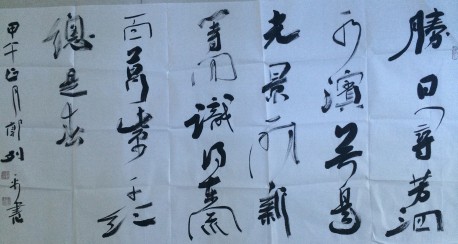 勝日尋芳泗
水濱無邊
光景一時新
等閒識得東風
面萬紫千紅
總是春
甲午正月書